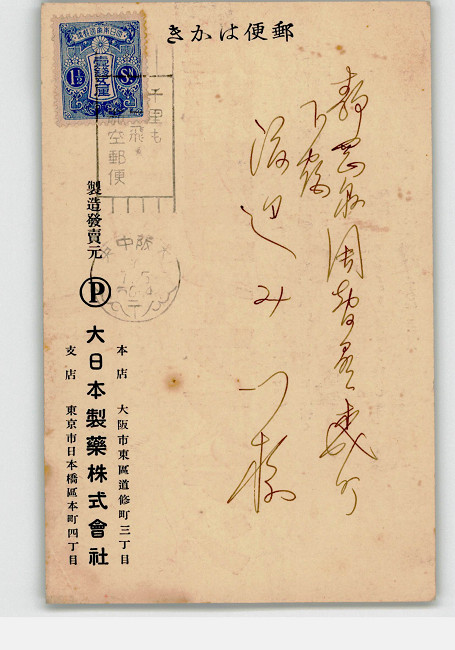 郵便はかき
静岡縣周智郡森町
下宿
渡辺み つ 様
大日本帝國郵便
壹錢五厘
1½ Sn
千里も
飛
航空郵便
中 阪 大
製造發賣元
P
大日本製藥株式會社
本店 大阪市東區道修町三丁目
支店 東京市日本橋區本町四丁目